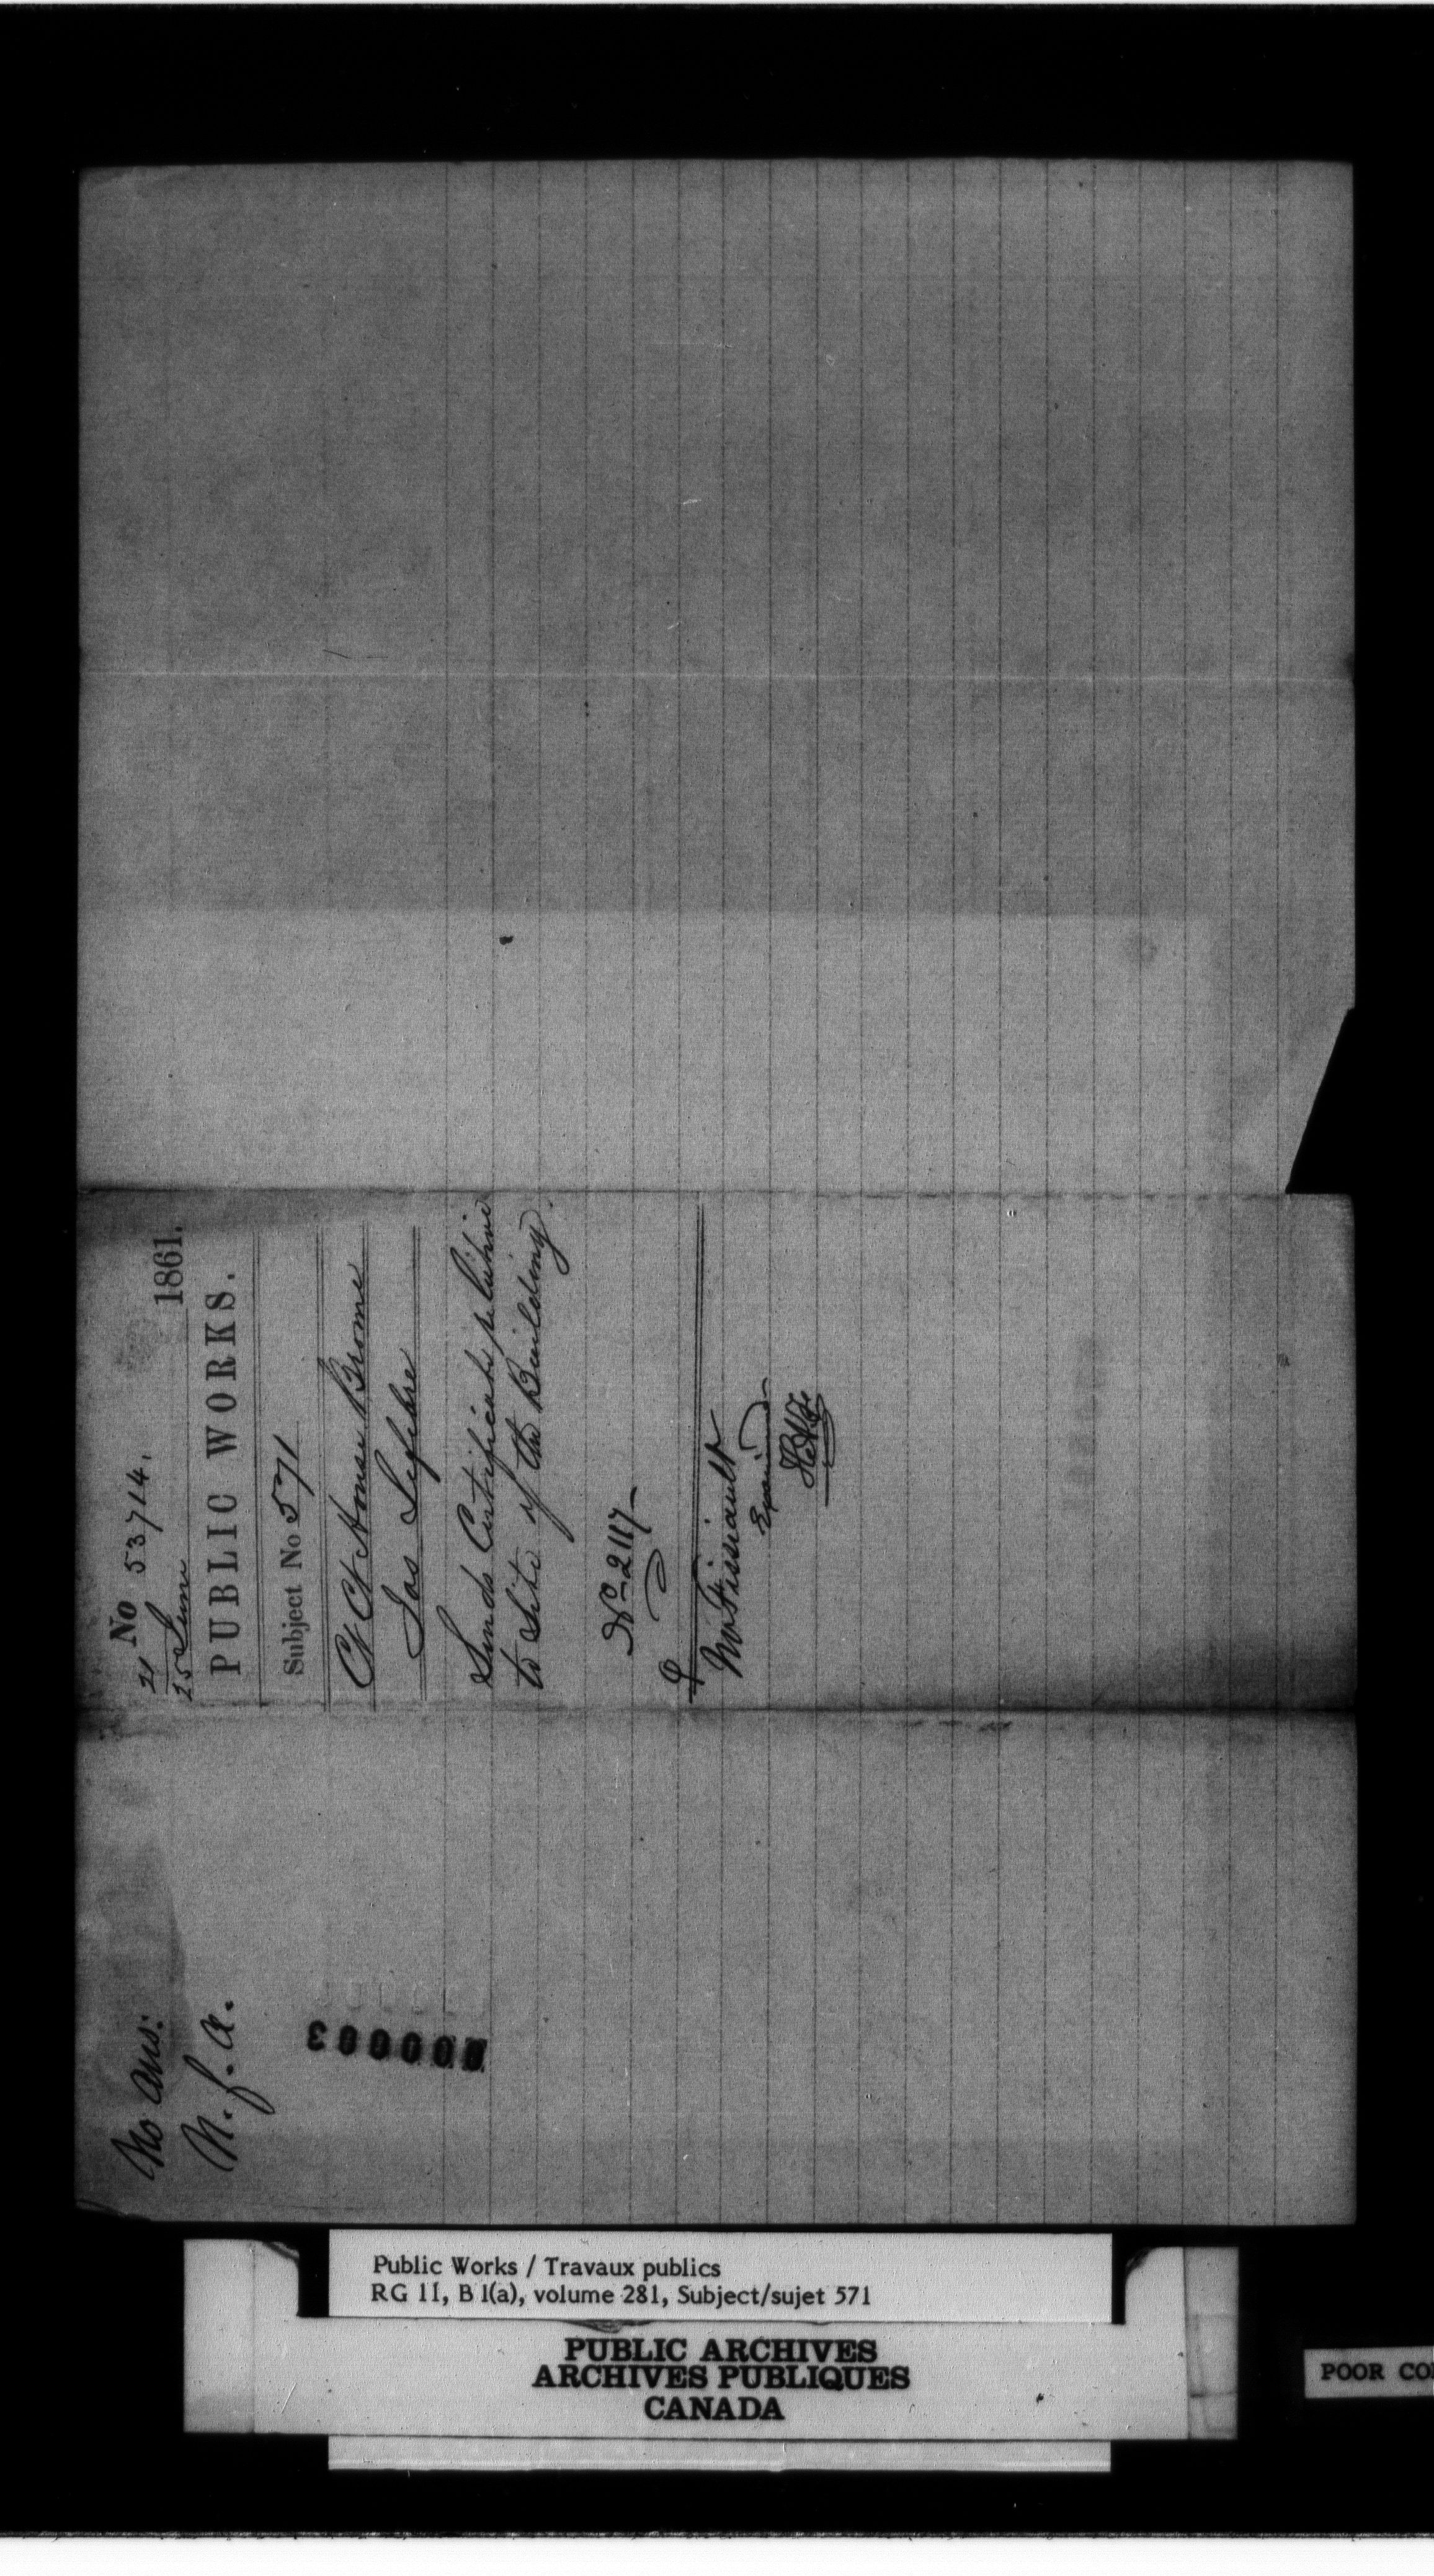 No 53714.
21
25 June 1861.
PUBLIC WORKS.
Subject No 571
Ct Ct House Brome
Jas Lefebre
Sends Certificate relative
to Site of the Building.
No 2117
Mr Fissiault
No Ans:
N. f. a.
000003
Public Works / Travaux publics
RG 11, B 1(a), volume 281, Subject/sujet 571
PUBLIC ARCHIVES
ARCHIVES PUBLIQUES
CANADA
POOR CO